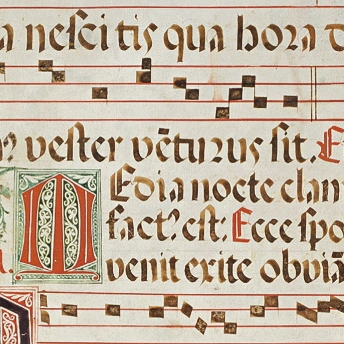 a nescitis qua hora d
vester vēturus sit. E
MEdia nocte clam
fact⁹ est. Ecce spo
venit exite obviā